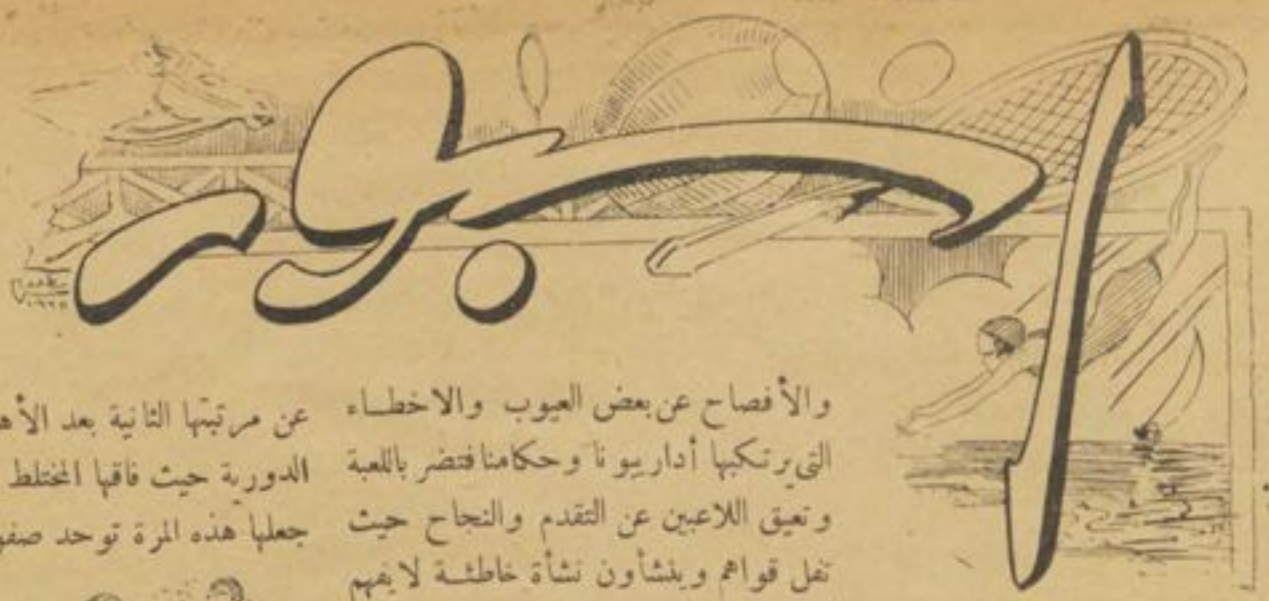 اسبور
والأفصاح عن بعض العيوب والاخطاء
التي يرتكبها أداريونا وحكامنا فتضر باللعبة
وتعيق اللاعبين عن التقدم والنجاح حيث
تفل قواهم وينشأون نشأة خاطئة لايفهم
عن مرتبتها الثانية بعد الأه
الدورية حيث فاقها المختلط
جعلها هذه المرة توحد صفو